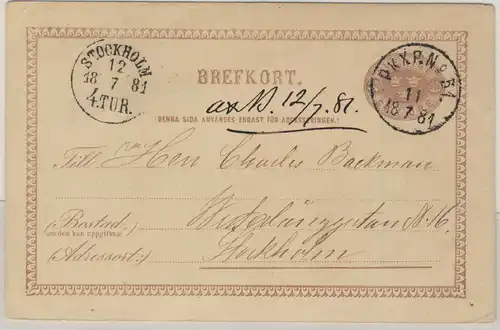 STOCKHOLM
12
18 7 81
4.TUR.
PKXP. No 51.
11
18 7 81
BREFKORT.
ank. 12/7. 81.
(DENNA SIDA ANVÄNDES ENDAST FÖR ADRESSERINGEN.)
Till Herr Charles Backman
(Bostad:
om den kan uppgifvas)
Westerlånggatan N. 16.
(Adressort:) Stockholm